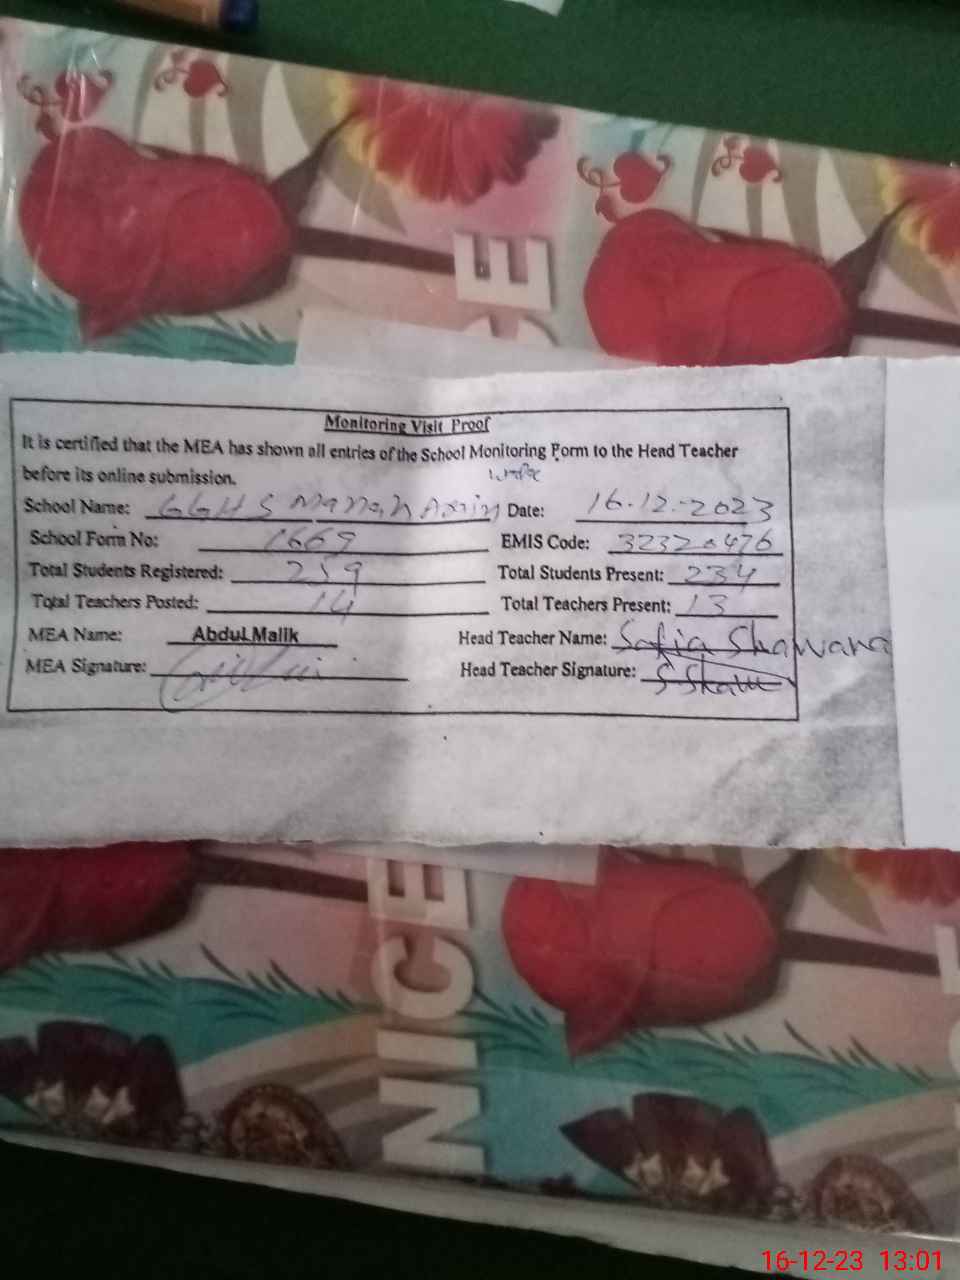 NICE
Monitoring Visit Proof
It is certified that the MEA has shown all entries of the School Monitoring Form to the Head Teacher
before its online submission.
School Name: GGHS Date: 16.12.2023
School Form No: 1669 EMIS Code: 32320476
Total Students Registered: 259 Total Students Present: 234
Total Teachers Posted: 14 Total Teachers Present: 13
MEA Name: Abdul Malik Head Teacher Name: Safia Shawana
MEA Signature: Head Teacher Signature:
NICE
16-12-23 13:01